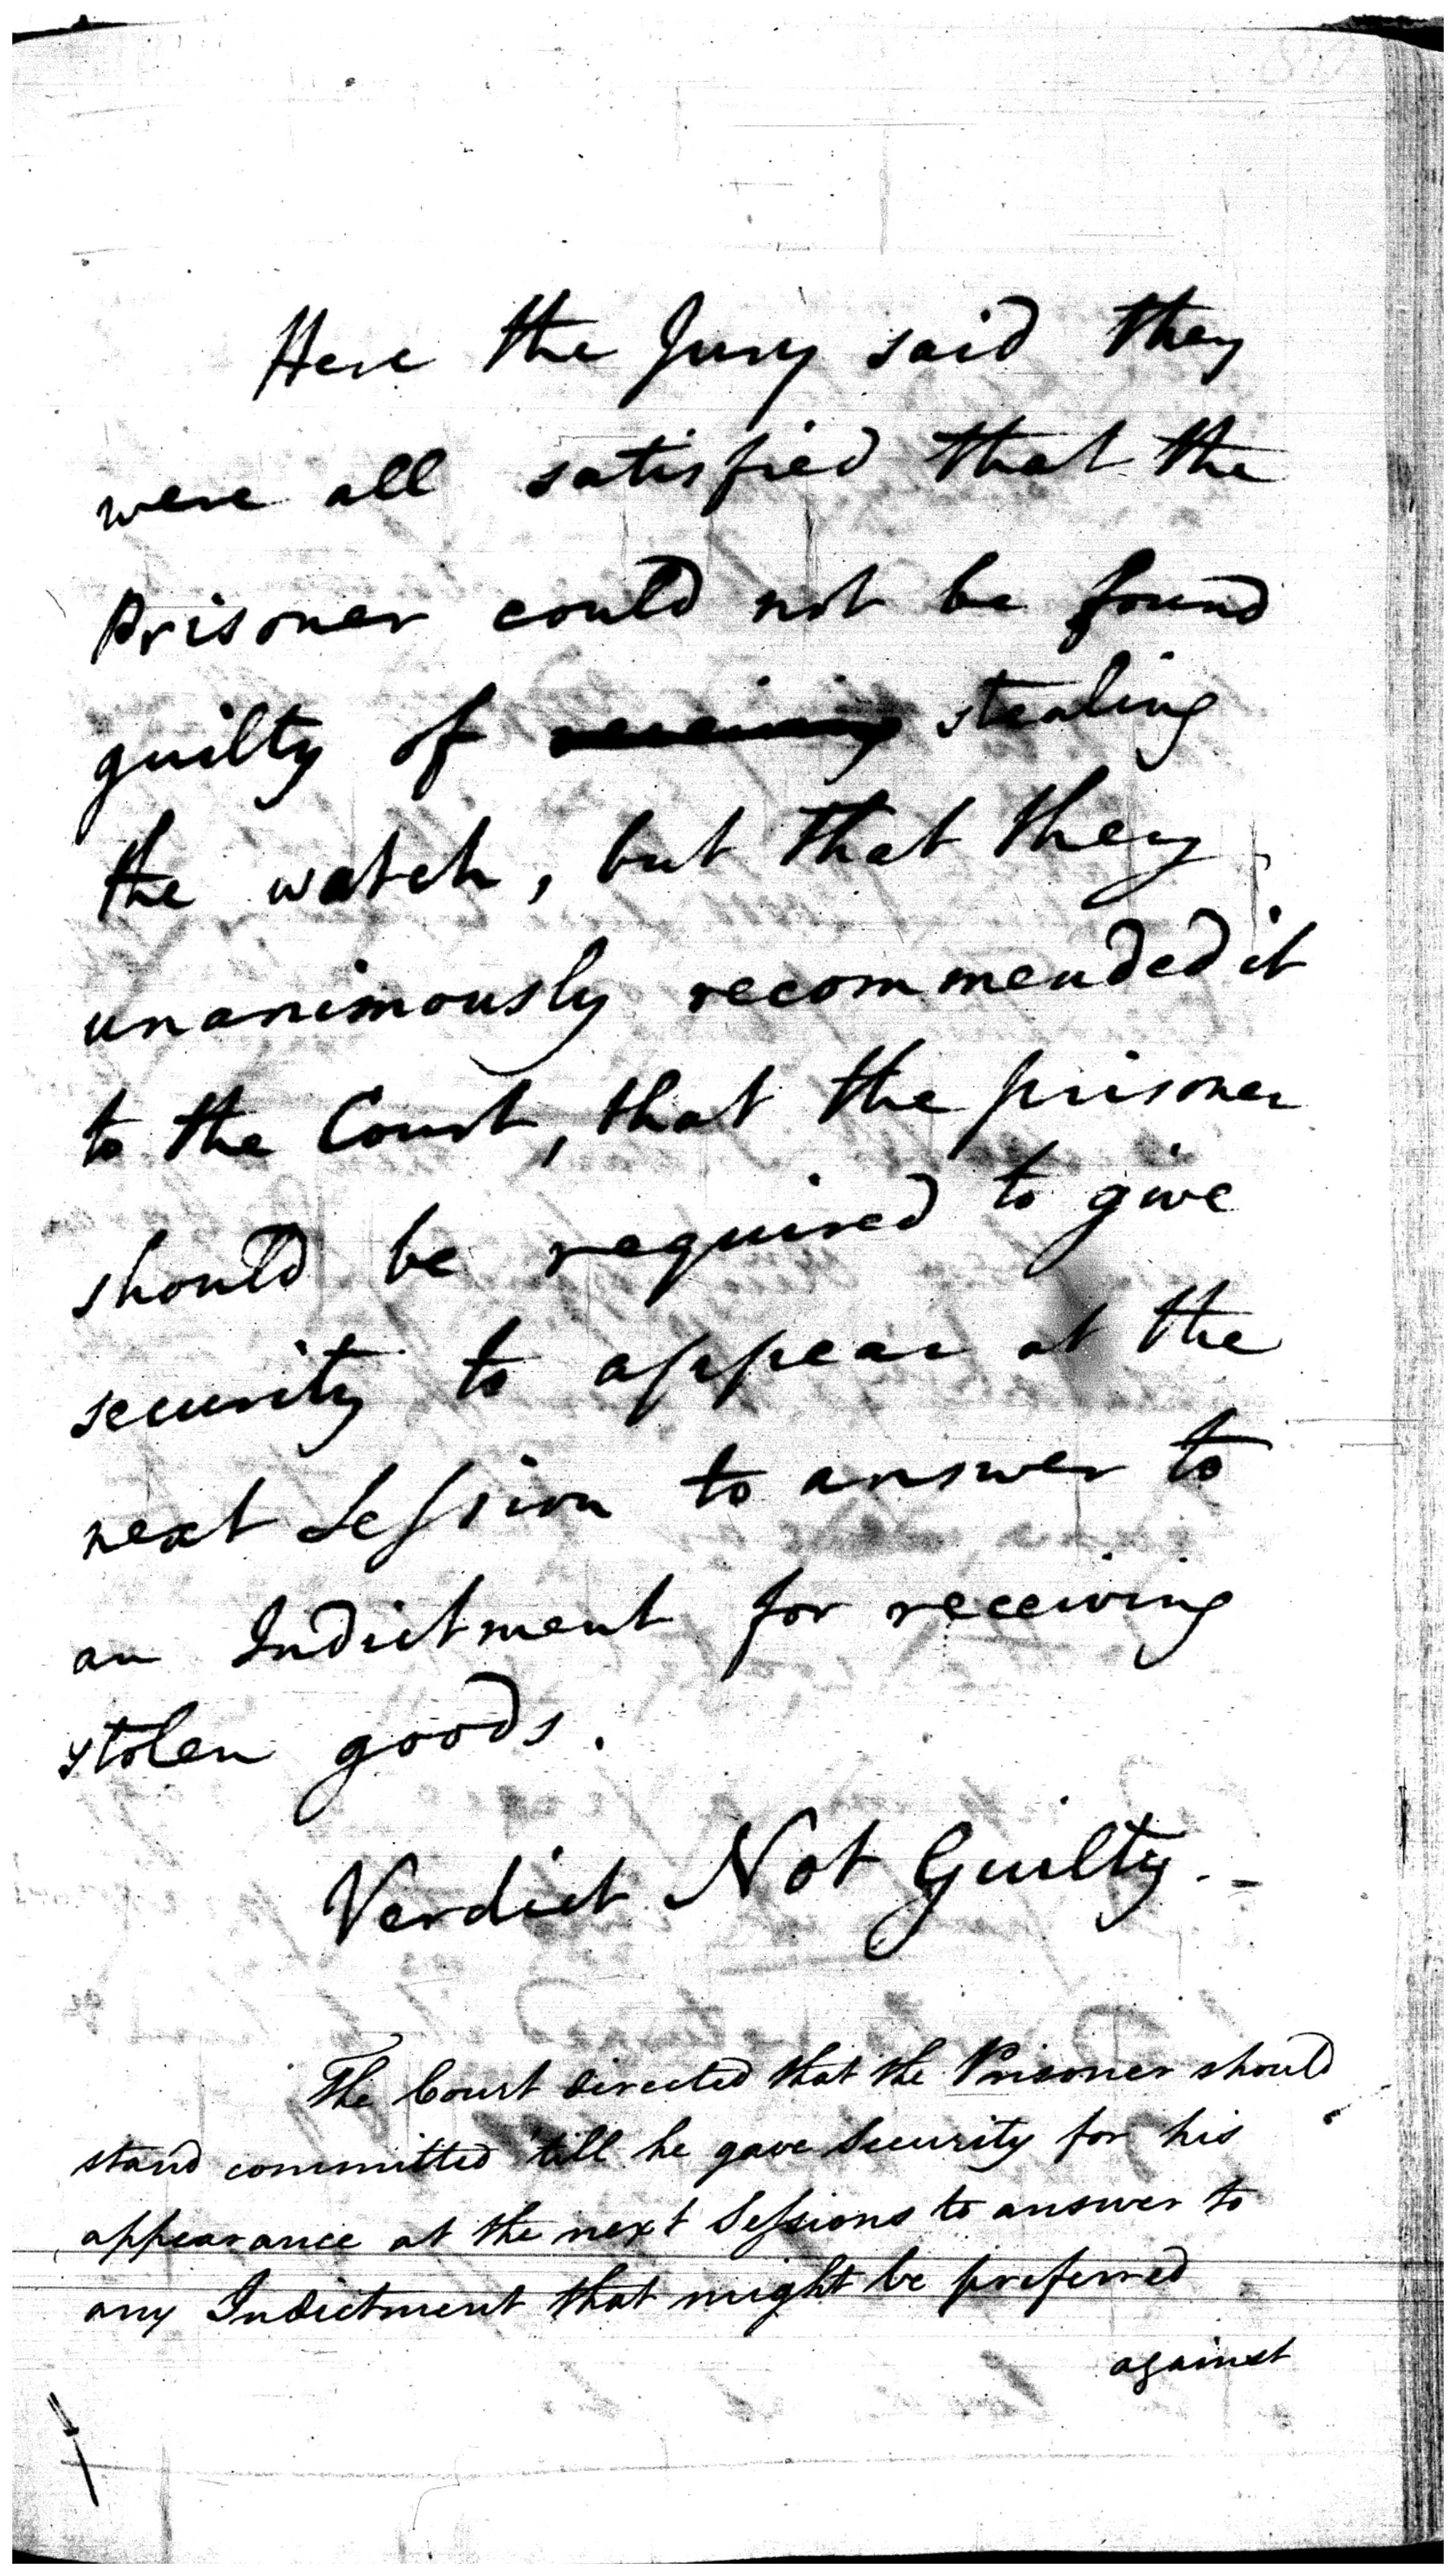 Here the Jury said they
were all satisfied that the
Prisoner could not be found
guilty of receiving stealing
the watch, but that they
unanimously recommended it
to the Court, that the prisoner
should be required to give
security to appear at the
next Seſsion to answer to
an Indictment for receiving
stolen goods.
Verdict Not Guilty. -
The Court directed that the Prisoner should
stand committed 'till he gave Security for his
appearance at the next Seſsions to answer to
any Indictment that might be preferred
against